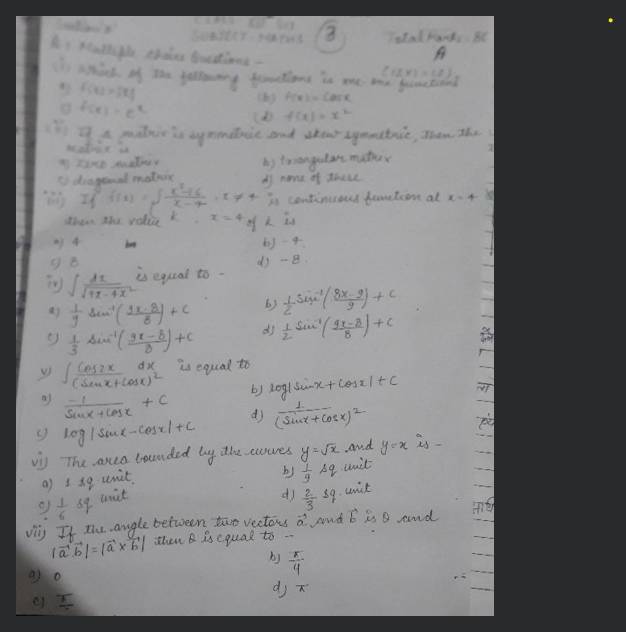 Section A
CLASS XII
SUBJECT - MATHS (3) Total Marks: 80
Q1 Multiple choice Questions -
(i) Which of the following functions is one one functions
a) f(x) = |x| (b) f(x) = cosx
c) f(x) = e^x (d) f(x) = x²
(ii) If a matrix is symmetric and skew symmetric, then the matrix is
a) zero matrix b) triangular matrix
c) diagonal matrix d) none of these
(iii) If f(x) = { x²-16/x-4 , x ≠ 4 is continuous function at x = 4
k , x = 4
then the value of k is
a) 4 b) -4.
c) 8 d) -8.
iv) ∫ dx/√9x-4x² is equal to -
a) 1/9 sin⁻¹(9x-8/8) + c b) 1/2 sin⁻¹(8x-9/9) + c
c) 1/3 sin⁻¹(9x-8/8) + c d) 1/2 sin⁻¹(9x-8/8) + c
v) ∫ cos2x/(sinx+cosx)² dx is equal to
a) -1/sinx+cosx + c b) log|sinx+cosx| + c
c) log|sinx-cosx| + c d) 1/(sinx+cosx)²
vi) The area bounded by the curves y=√x and y=x is -
a) 1 sq unit. b) 1/9 sq unit
c) 1/6 sq unit d) 2/3 sq. unit
vii) If the angle between two vectors a⃗ and b⃗ is θ and
|a⃗.b⃗| = |a⃗ x b⃗| then θ is equal to -
a) 0 b) π/4
c) π d) π